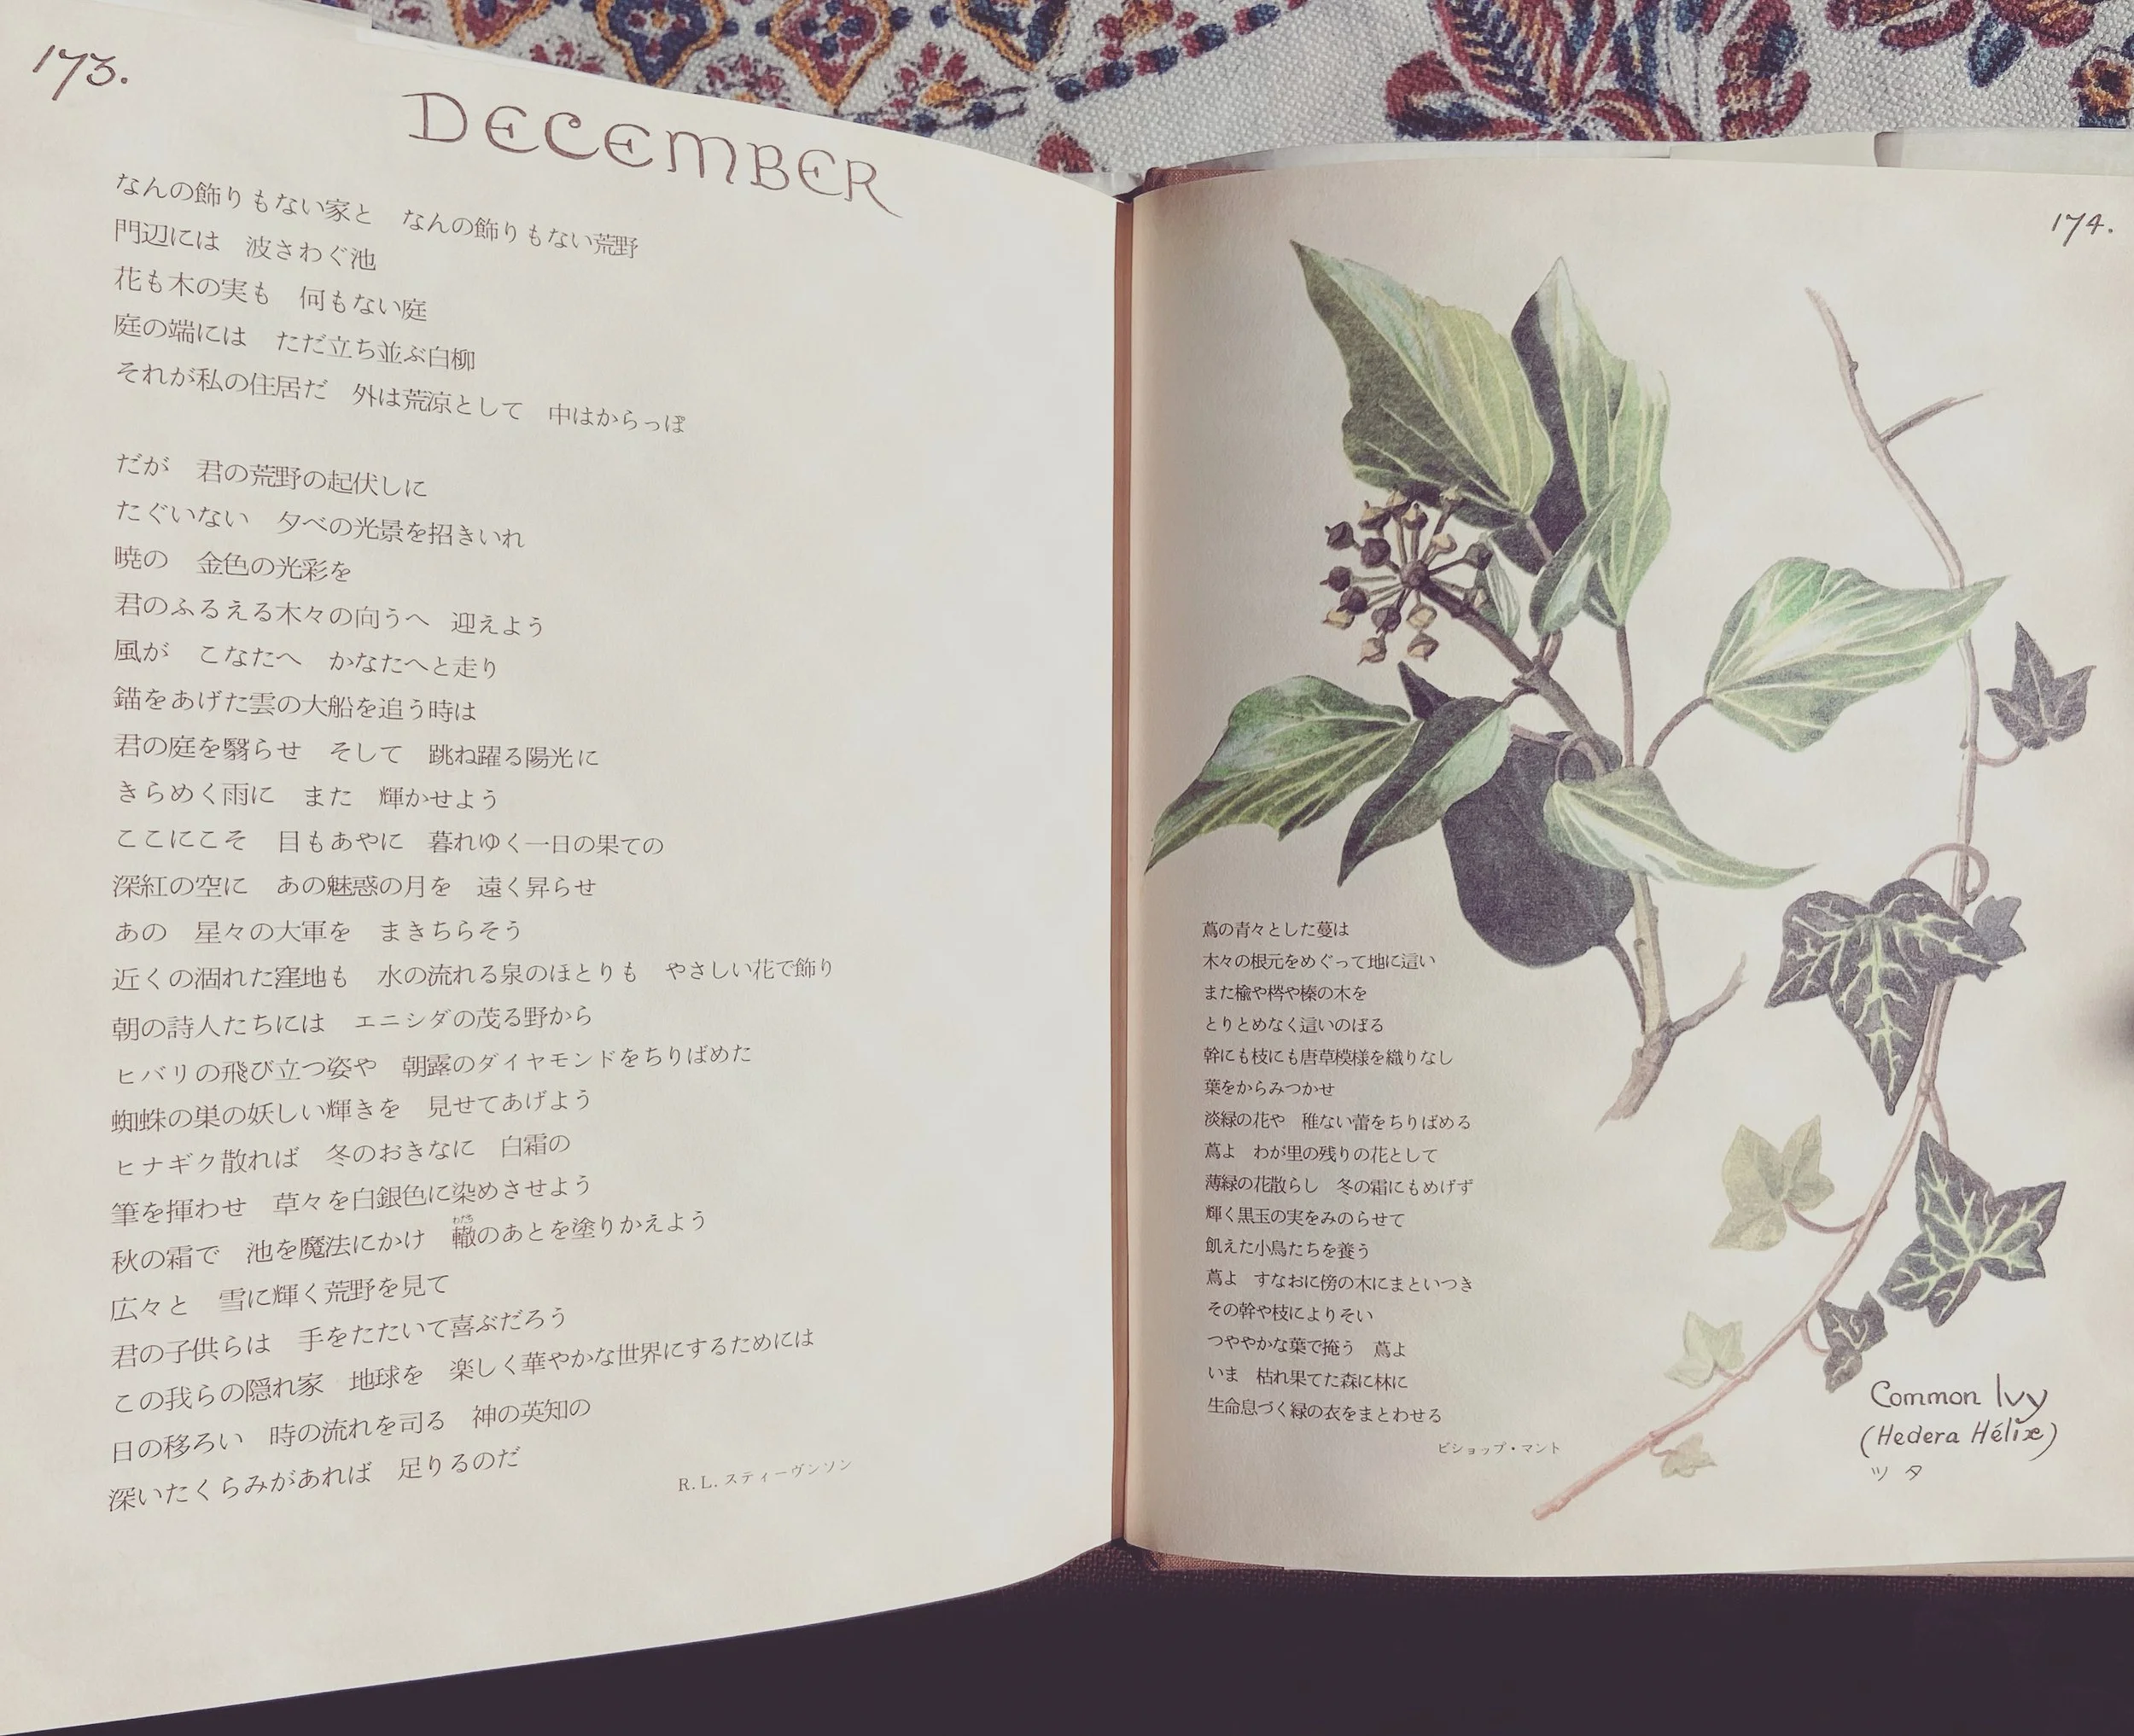 173.
DECEMBER
なんの飾りもない家と　なんの飾りもない荒野
門辺には　波さわぐ池
花も木の実も　何もない庭
庭の端には　ただ立ち並ぶ白柳
それが私の住居だ　外は荒凉として　中はからっぽ
だが　君の荒野の起伏しに
たぐいない　夕べの光景を招きいれ
暁の　金色の光彩を
君のふるえる木々の向うへ　迎えよう
風が　こなたへ　かなたへと走り
錨をあげた雲の大船を追う時は
君の庭を翳らせ　そして　跳ね躍る陽光に
きらめく雨に　また　輝かせよう
ここにこそ　目もあやに　暮れゆく一日の果ての
深紅の空に　あの魅惑の月を　遠く昇らせ
あの　星々の大軍を　まきちらそう
近くの涸れた窪地も　水の流れる泉のほとりも　やさしい花で飾り
朝の詩人たちには　エニシダの茂る野から
ヒバリの飛び立つ姿や　朝露のダイヤモンドをちりばめた
蜘蛛の巣の妖しい輝きを　見せてあげよう
ヒナギク散れば　冬のおきなに　白霜の
筆を揮わせ　草々を白銀色に染めさせよう
秋の霜で　池を魔法にかけ　轍のあとを塗りかえよう
わだち
広々と　雪に輝く荒野を見て
君の子供らは　手をたたいて喜ぶだろう
この我らの隠れ家　地球を　楽しく華やかな世界にするためには
日の移ろい　時の流れを司る　神の英知の
深いたくらみがあれば　足りるのだ
R.L.スティーヴンソン
174.
蔦の青々とした蔓は
木々の根元をめぐって地に這い
また楡や梣や榛の木を
とりとめなく這いのぼる
幹にも枝にも唐草模様を織りなし
葉をからみつかせ
淡緑の花や　稚ない蕾をちりばめる
蔦よ　わが里の残りの花として
薄緑の花散らし　冬の霜にもめげず
輝く黒玉の実をみのらせて
飢えた小鳥たちを養う
蔦よ　すなおに傍の木にまといつき
その幹や枝によりそい
つややかな葉で掩う　蔦よ
いま　枯れ果てた森に林に
生命息づく緑の衣をまとわせる
ビショップ・マント
Common Ivy
(Hedera Hélix)
ツタ